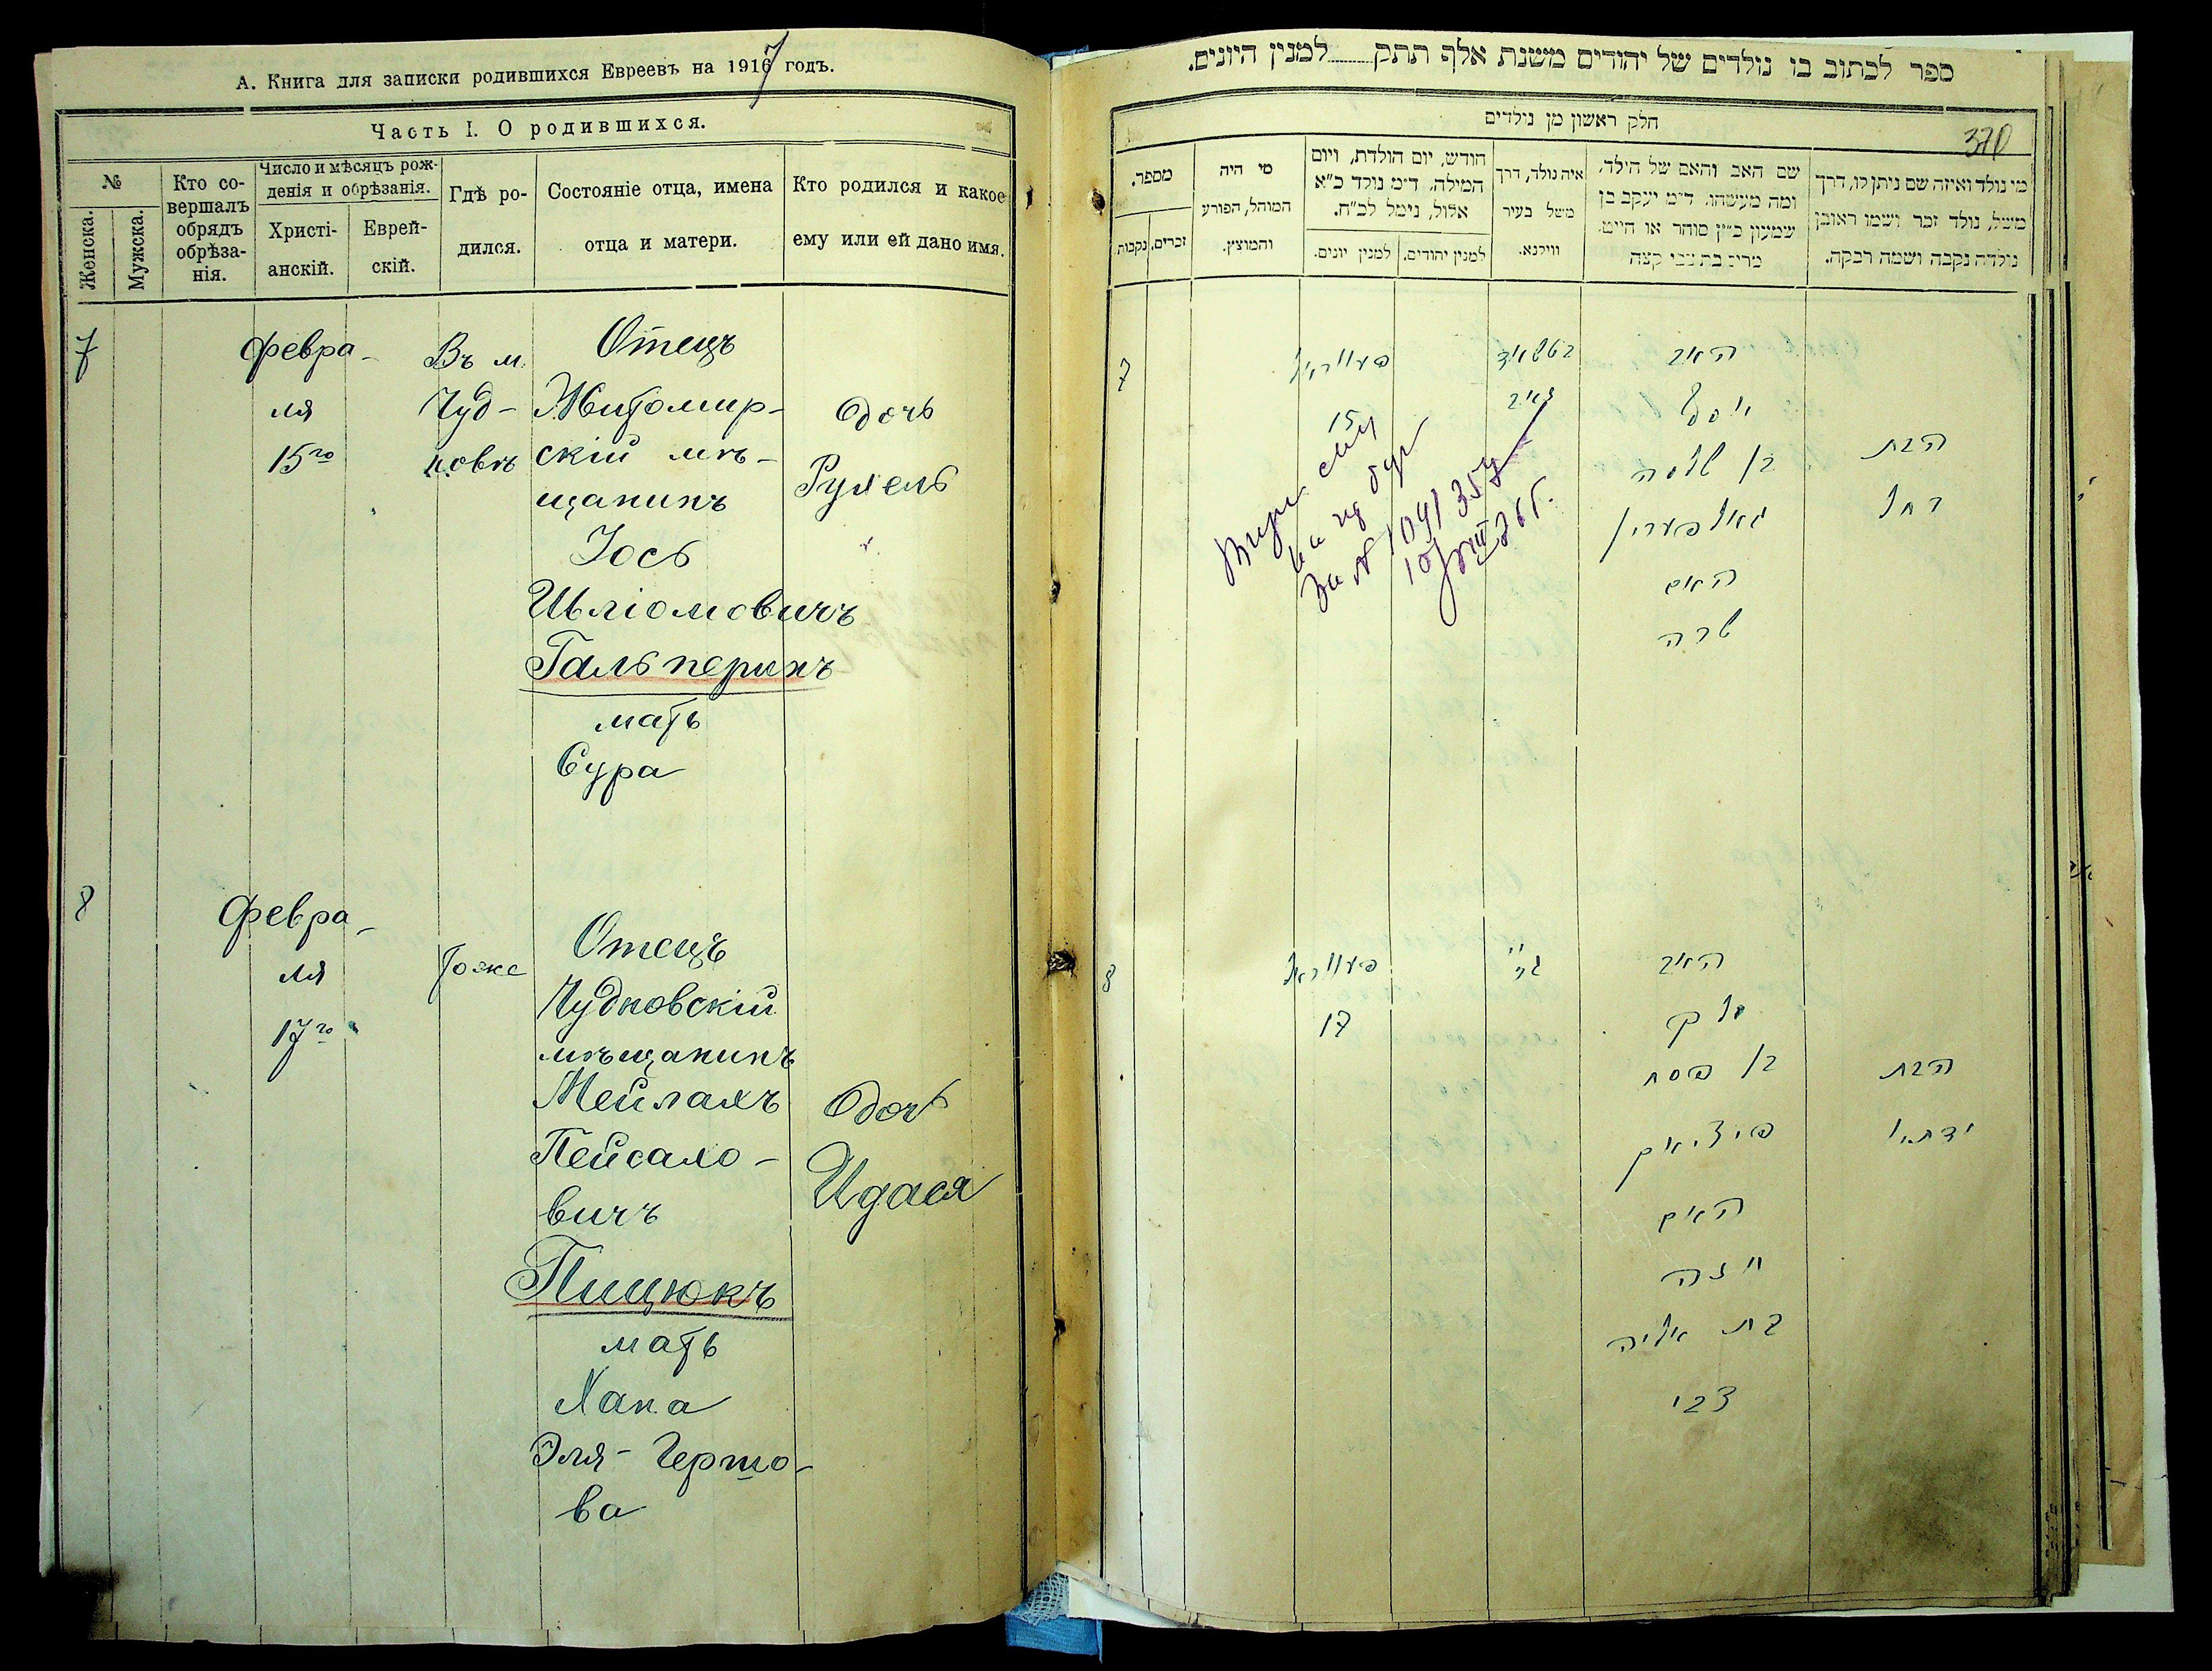 А. Книга для записки родившихся Евреевъ на 1917 годъ.
Часть I. О родившихся.
№
Женска.
Мужска.
Кто со-
вершалъ
обрядъ
обрѣза-
нія.
Число и мѣсяцъ рож-
денія и обрѣзанія.
Христі-
анскій.
Еврей-
скій.
Гдѣ ро-
дился.
Состояніе отца, имена
отца и матери.
Кто родился и какое
ему или ей дано имя.
7
Февра-
ля
15го
Въ м.
Чуд-
новѣ
Отецъ
Житомир-
скій мѣ-
щанинъ
Іось
Шліомовичъ
Гальперинъ
мать
Сура
Дочь
Рухель
8
Февра-
ля
17го
тоже
Отецъ
Чудновскій
мѣщанинъ
Мейлахъ
Пейсахо-
вичъ
Пицюкъ
мать
Хана
Эля-Гершо-
ва
Дочь
Идася
ספר לכתוב בו נולדים של יהודים משנת אלף תתק למנין היונים.
חלק ראשון מן נולדים
370
מספר.
זכרים.
נקבות
מי היה
המוהל, הפורע
והמוצץ.
חודש, יום הולדת, ויום
המילה. ד״מ נולד כ״א
אלול, נימל לכ״ח.
למנין יונים.
למנין יהודים.
איה נולד, דרך
משל בעיר
ווילנא.
שם האב והאם של הילד,
ומה מעשהו. ד״מ יעקב בן
שמעון כ״ץ סוחר או חייט.
מרים בת צבי קצה
מי נולד ואיזה שם ניתן לו, דרך
משל, נולד זכר ושמו ראובן
נולדה נקבה ושמה רבקה.
7
פעווראל
15
האב
יוסף
בן שלמה
גאלפערין
האם
שרה
הבת
רחל
За № 1091357
10/VIII 26 г.
8
פעווראל
17
האב
מלך
בן פסח
פיציאק
האם
חנה
בת אליה
צבי
הבת